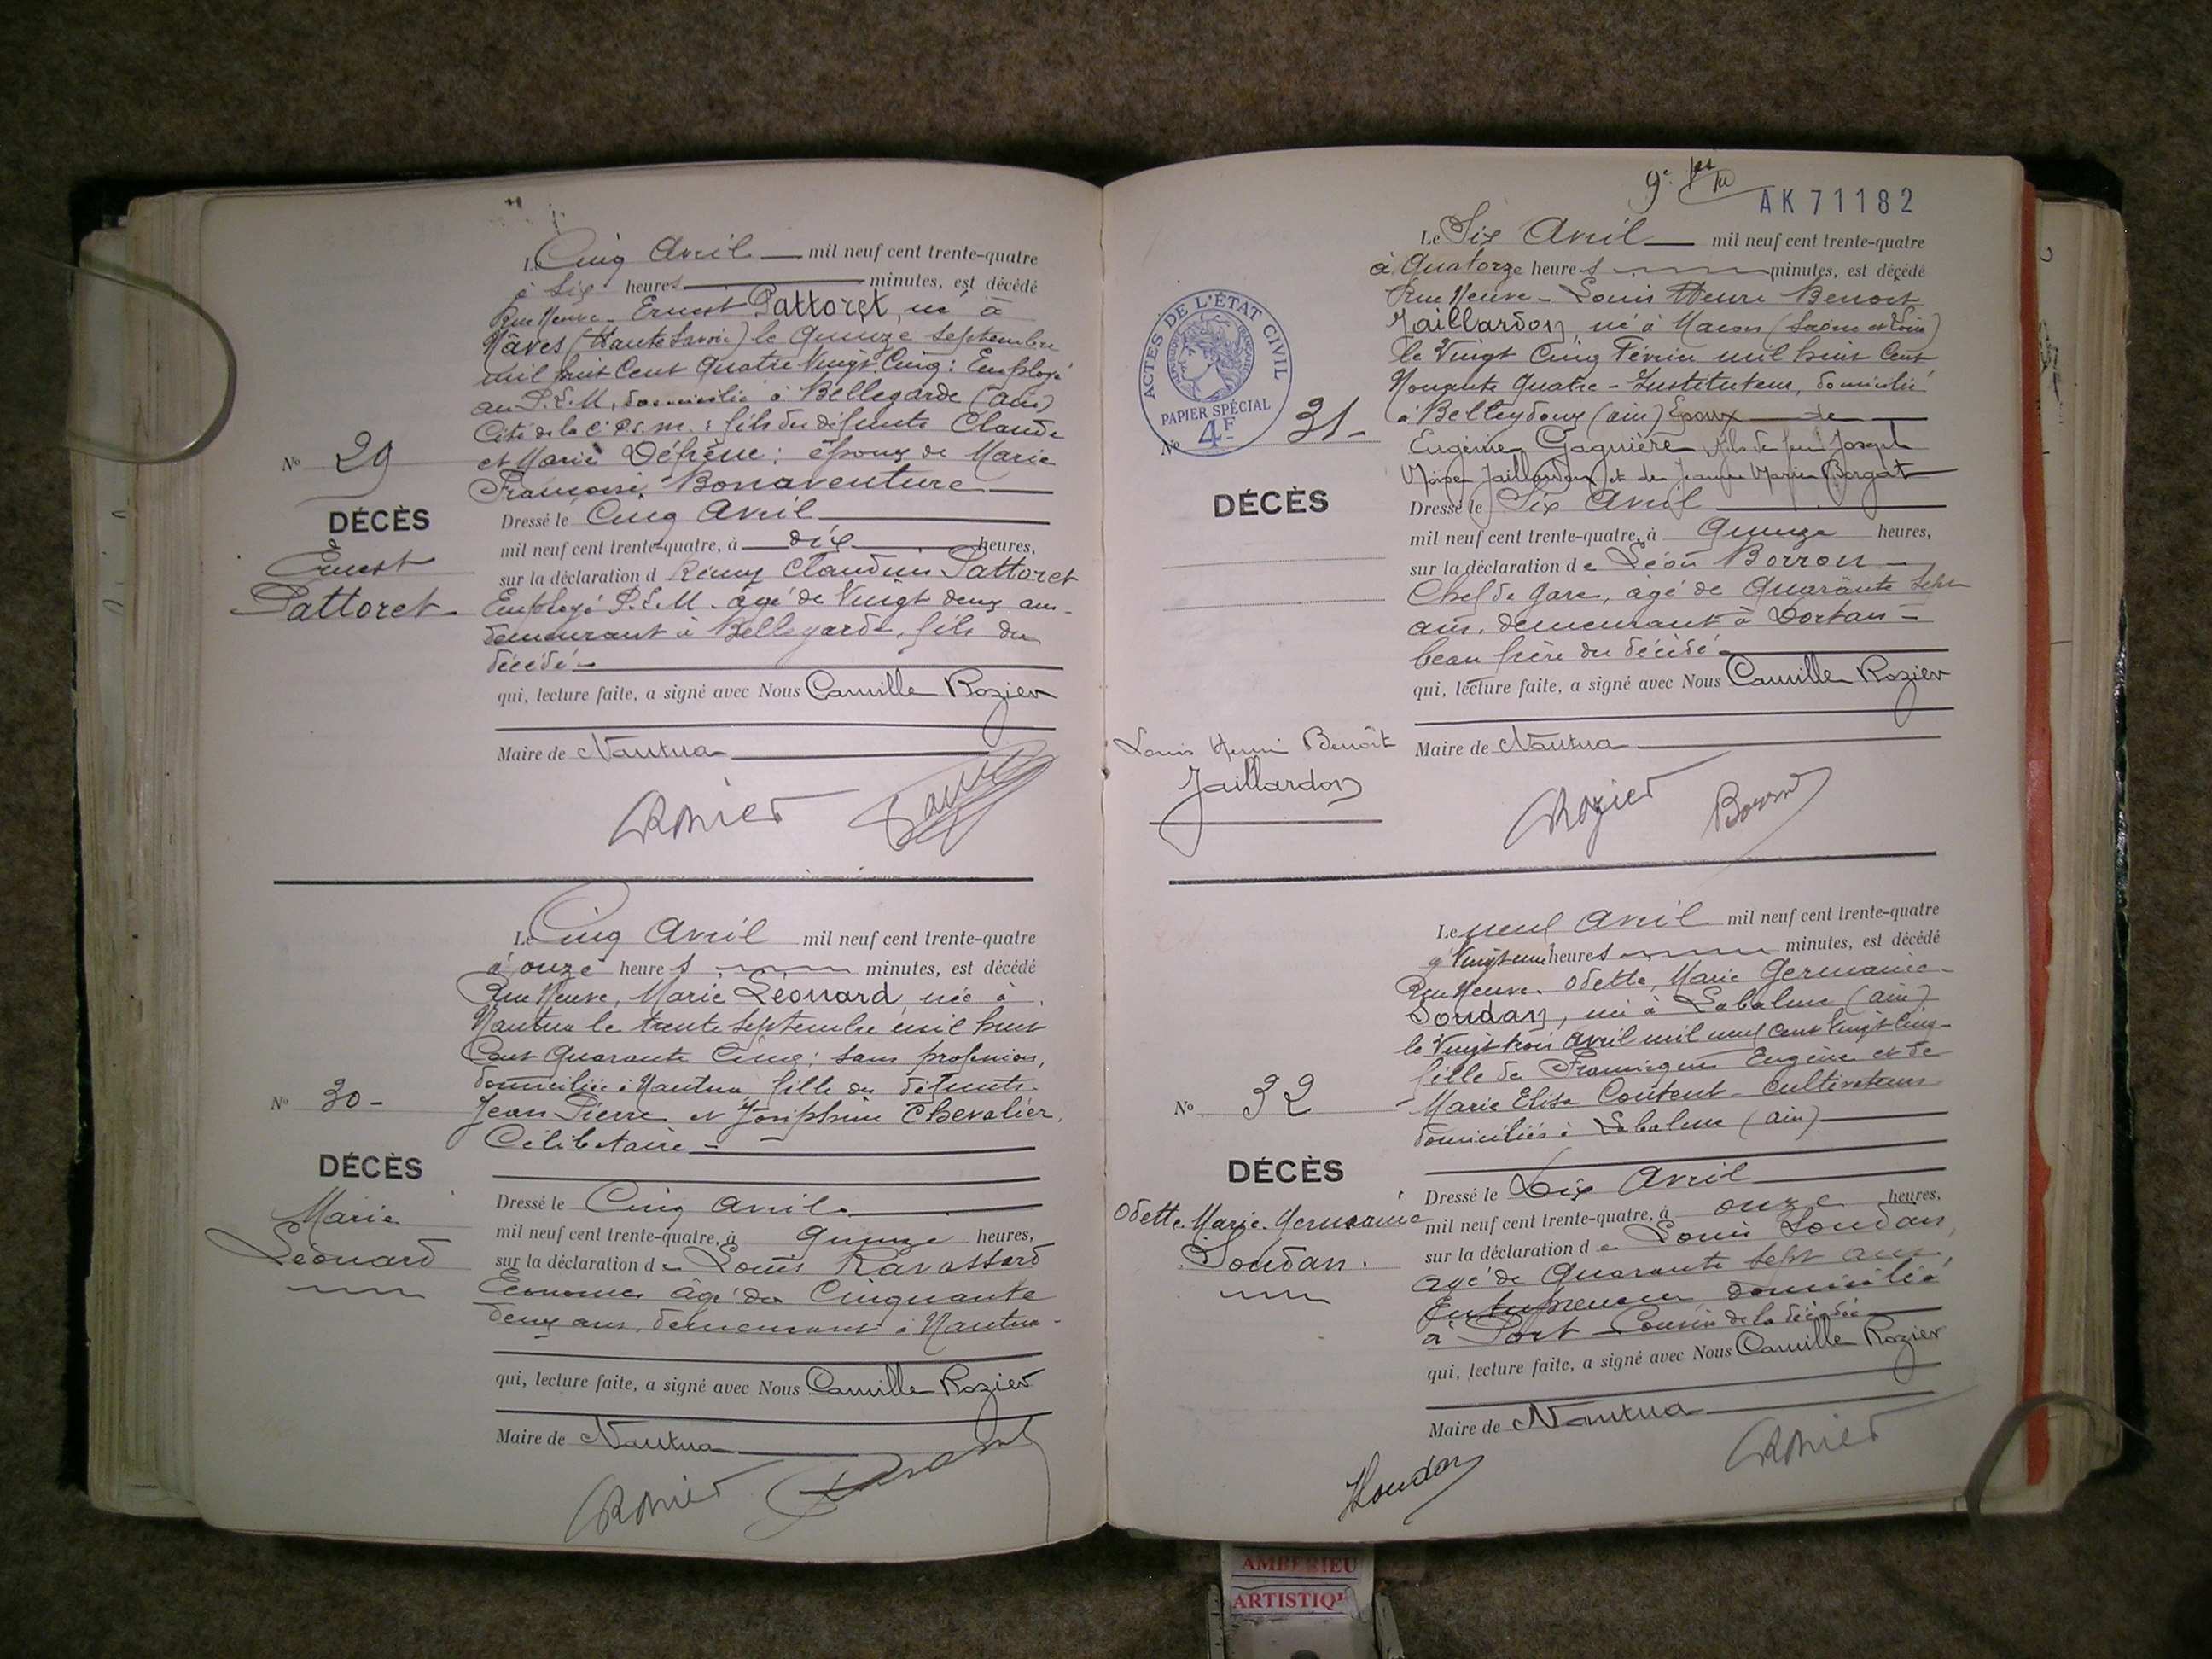 Le Cinq Avril mil neuf cent trente-quatre
à Six heures minutes, est décédé
Rue Neuve - Ernest Pattoret, né à
Nâves (Haute Savoie) le quinze septembre
mil huit Cent Quatre Vingt Cinq : Employé
au P.L.M, domicilié à Bellegarde (ain)
Cité de la Cie P.L.M. : fils des défunts Claude
et Marie Défrène : époux de Marie
Françoise Bonaventure
Nº 29
DÉCÈS
Ernest
Pattoret
Dressé le Cinq Avril
mil neuf cent trente-quatre, à dix heures,
sur la déclaration d Rémy Claudius Pattoret
Employé P.L.M. âgé de Vingt deux ans
demeurant à Bellegarde, fils du
décédé
qui, lecture faite, a signé avec Nous Camille Rozier
Maire de Nantua
Rozier
Le Cinq Avril mil neuf cent trente-quatre
à onze heures minutes, est décédé
Rue Neuve, Marie Léonard, née à
Nantua le trente Septembre mil huit
Cent Quarante Cinq ; sans profession,
domiciliée à Nantua fille des défunts
Jean Pierre et Joséphine Chevalier.
Célibataire
Nº 30
DÉCÈS
Marie
Léonard
Dressé le Cinq avril
mil neuf cent trente-quatre, à Quinze heures,
sur la déclaration de Louis Ravassard
Econome âgé de Cinquante
deux ans, demeurant à Nantua
qui, lecture faite, a signé avec Nous Camille Rozier
Maire de Nantua
Rozier
9e
AK 71182
Le Six Avril mil neuf cent trente-quatre
à Quatorze heures minutes, est décédé
Rue Neuve - Louis Henri Benoit
Jaillardon, né à Macon (Saône et Loire)
le Vingt Cinq Février mil huit Cent
Nonante Quatre - Instituteur, domicilié
à Belleydoux (ain) Epoux de
Eugénie Gagnière fils de feu Joseph
Moïse Jaillardon et de Jeanne Marie Borgat
ACTES DE L'ÉTAT CIVIL
RÉPUBLIQUE FRANÇAISE
PAPIER SPÉCIAL
4F
Nº 31
DÉCÈS
Dressé le Six Avril
mil neuf cent trente-quatre, à Quinze heures,
sur la déclaration de Léon Borron
Chef de Gare, âgé de Quarante sept
ans, demeurant à Dortan
beau frère du décédé
qui, lecture faite, a signé avec Nous Camille Rozier
Louis Henri Benoît
Jaillardon
Maire de Nantua
Rozier Borron
Le neuf Avril mil neuf cent trente-quatre
à Vingt une heures minutes, est décédé
Rue Neuve - Odette, Marie Germaine
Soudan, née à Labalme (ain)
le Vingt trois Avril mil neuf cent Vingt Cinq
fille de François Eugène et de
Marie Elisa Coutent - Cultivateurs
domiciliés à Labalme (ain)
Nº 32
DÉCÈS
Odette Marie Germaine
Soudan.
Dressé le Dix Avril
mil neuf cent trente-quatre, à onze heures,
sur la déclaration de Louis Soudan
âgé de Quarante sept ans,
Entrepreneur domicilié
à Port - Cousin de la décédée
qui, lecture faite, a signé avec Nous Camille Rozier
Maire de Nantua
Soudan Rozier
AMBERIEU
ARTISTIQ